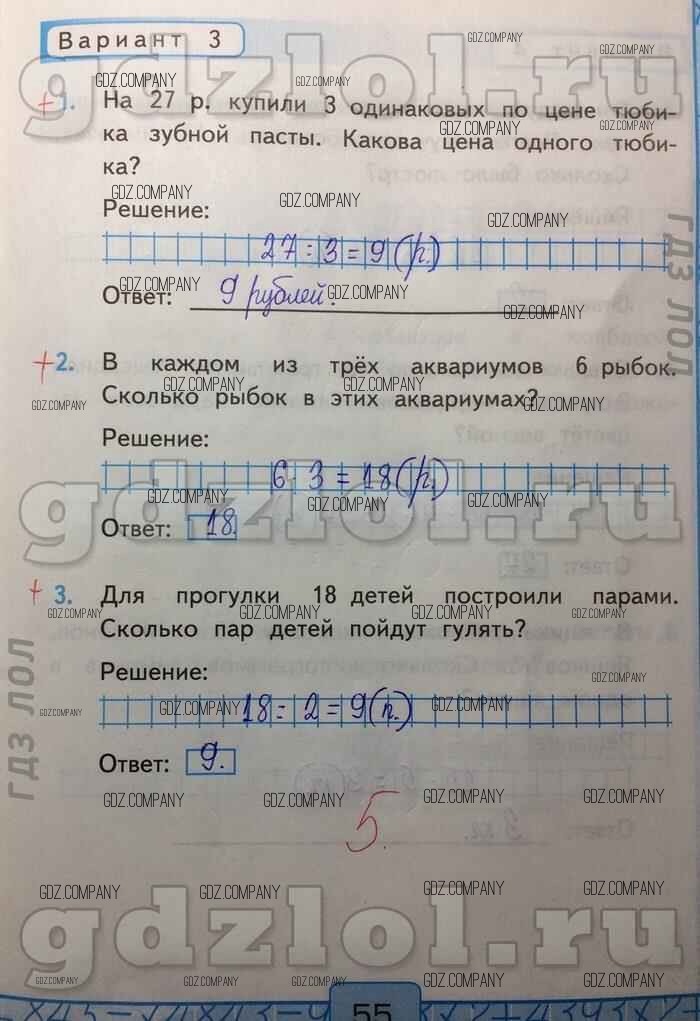 Вариант 3
GDZ.COMPANY
gdzlol.ru
+ 1. На 27 р. купили 3 одинаковых по цене тюби-
ка зубной пасты. Какова цена одного тюби-
ка?
Решение:
27 : 3 = 9 (р.)
Ответ: 9 рублей.
ГДЗ ЛОЛ
+ 2. В каждом из трёх аквариумов 6 рыбок.
Сколько рыбок в этих аквариумах?
Решение:
6 · 3 = 18 (р.)
gdzlol.ru
Ответ: 18.
+ 3. Для прогулки 18 детей построили парами.
Сколько пар детей пойдут гулять?
Решение:
18 : 2 = 9 (п.)
Ответ: 9.
ГДЗ ЛОЛ
5.
gdzlol.ru
55